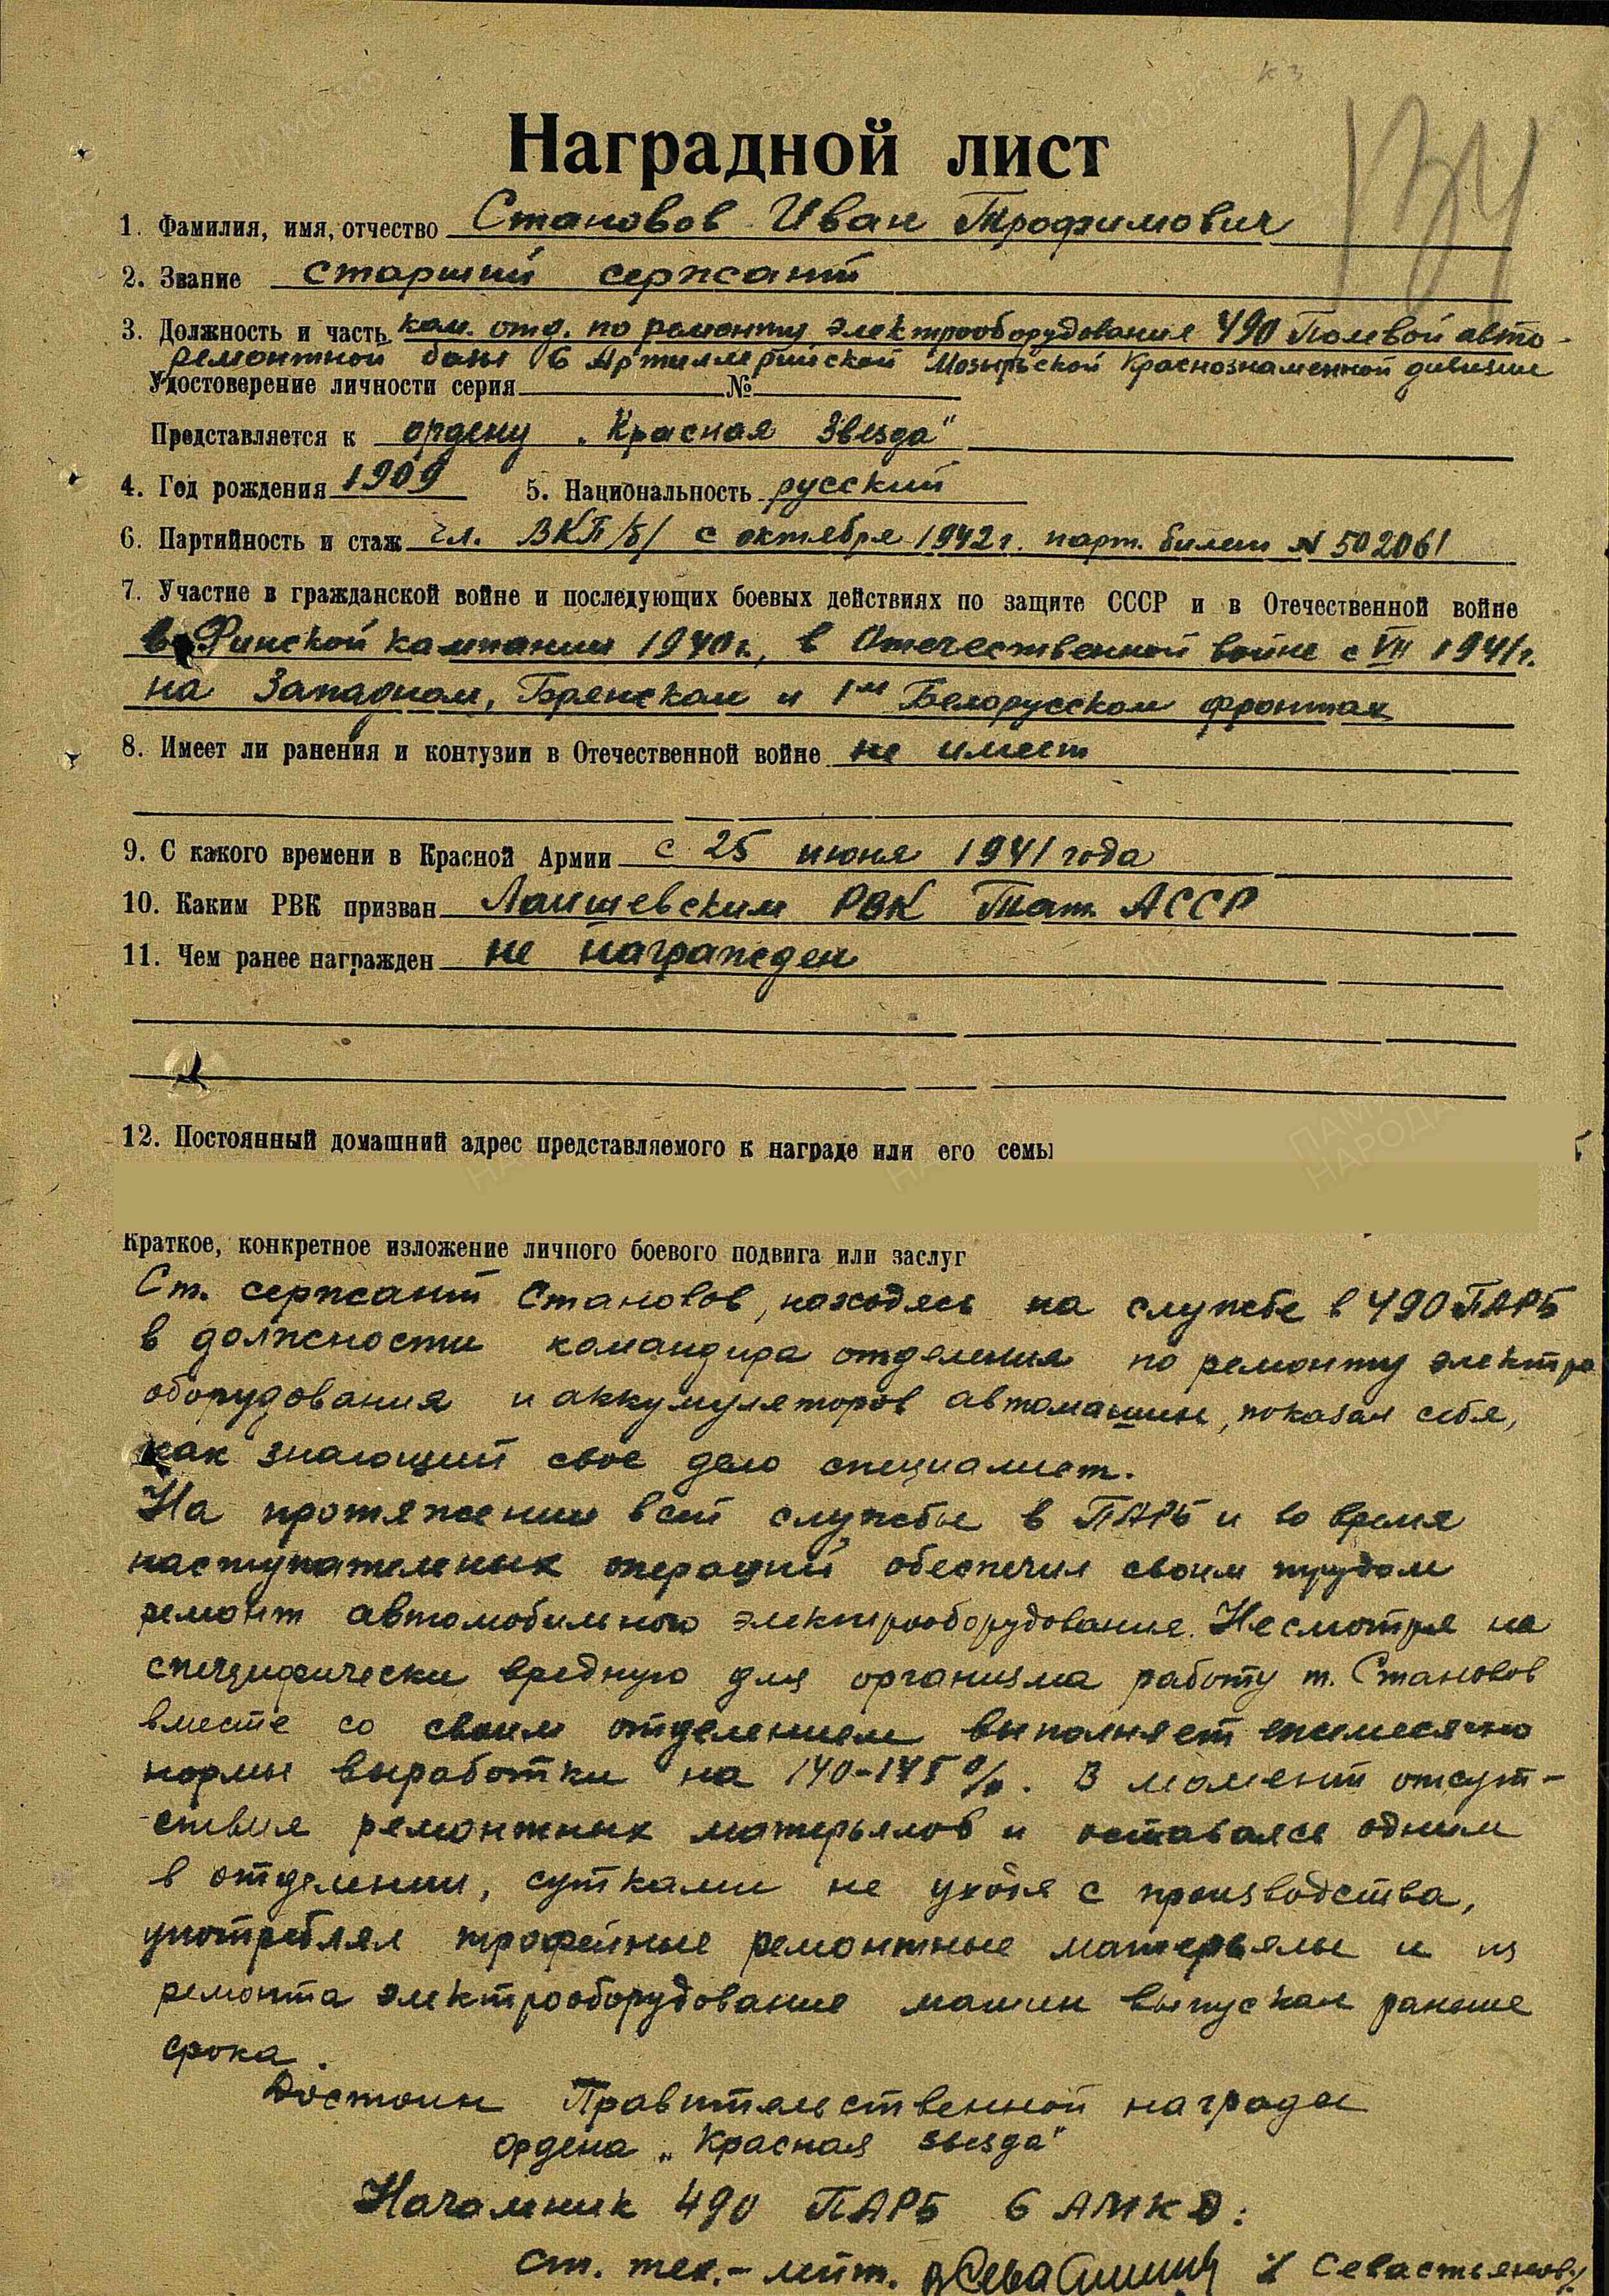 к з
134
Наградной лист
1. Фамилия, имя, отчество Становов Иван Трофимович
2. Звание старший сержант
3. Должность и часть ком. отд. по ремонту электрооборудования 490 Полевой авто-
ремонтной базы 6 Артиллерийской Мозырьской Краснознаменной дивизии
Удостоверение личности серия №
Представляется к ордену „Красная Звезда"
4. Год рождения 1909 5. Национальность русский
6. Партийность и стаж чл. ВКП/б/ с октября 1942г. парт. билет № 502061
7. Участие в гражданской войне и последующих боевых действиях по защите СССР и в Отечественной войне
в Финской кампании 1940г., в Отечественной войне с VII 1941г.
на Западном, Брянском и 1м Белорусском фронтах
8. Имеет ли ранения и контузии в Отечественной войне не имеет
9. С какого времени в Красной Армии с 25 июня 1941 года
10. Каким РВК призван Лаишевским РВК Тат. АССР
11. Чем ранее награжден не награжден
12. Постоянный домашний адрес представляемого к награде или его семьи
Краткое, конкретное изложение личного боевого подвига или заслуг
Ст. сержант Становов, находясь на службе в 490 ПАРБ
в должности командира отделения по ремонту электро
оборудования и аккумуляторов автомашин, показал себя,
как знающий свое дело специалист.
На протяжении всей службы в ПАРБ и во время
наступательных операций обеспечил своим трудом
ремонт автомобильного электрооборудования. Несмотря на
специфически вредную для организма работу т. Становов
вместе со своим отделением выполняет ежемесячно
нормы выработки на 140-145%. В момент отсут-
ствия ремонтных матерьялов и оставаясь одним
в отделении, сутками не уходя с производства,
употреблял трофейные ремонтные матерьялы и из
ремонта электрооборудование машин выпускал раньше
срока.
Достоин Правительственной награды
ордена „Красная звезда"
Начальник 490 ПАРБ 6 АМКД:
ст. тех.-лейт. /Севастьянов/